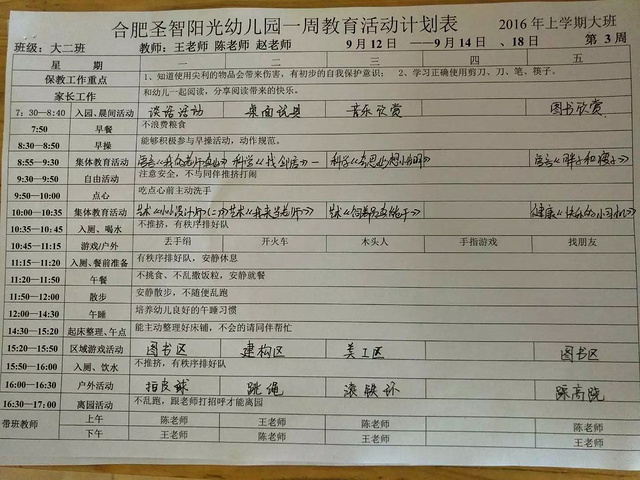 合肥圣智阳光幼儿园一周教育活动计划表 2016年上学期大班
班级：大二班 教师：王老师 陈老师 赵老师 9月12日 ——9月14日 、18日 第 3 周
星 期 一 二 三 四 五
保教工作重点 1、知道使用尖利的物品会带来伤害，有初步的自我保护意识； 2、学习正确使用剪刀、刀、笔、筷子。
家长工作 和幼儿一起阅读，分享阅读带来的快乐。
7：30—8:40 入园、晨间活动 谈话活动 桌面玩具 音乐欣赏 图书欣赏
7:50 早餐 不浪费粮食
8:30—8:50 早操 能够积极参与早操活动，动作规范。
8:55—9:30 集体教育活动 语言《我的老师 科学《找邻居》一 科学《 语言《胖子和瘦子》
9:30—9:50 自由活动 注意安全，不与同伴推挤打闹
9:50—10:00 点心 吃点心前主动洗手
10:00—10:35 集体教育活动 艺术《小小设计师》(二) 艺术《我来当老师》 艺术《 健康《快乐的小司机》
10:35—10:45 入厕、喝水 不推挤，有秩序排好队
10:45—11:15 游戏/户外 丢手绢 开火车 木头人 手指游戏 找朋友
11:15—11:20 入厕、餐前准备 有秩序排好队，安静休息
11:20—11:50 午餐 不挑食、不乱撒饭粒，安静就餐
11:50—12:00 散步 安静散步，不随便乱跑
12:00—14:30 午睡 培养幼儿良好的午睡习惯
14:30—15:20 起床整理、午点 能主动整理好床铺，不会的请同伴帮忙
15:20—15:50 区域游戏活动 图书区 建构区 美工区 图书区
15:50—16:00 入厕、饮水 不推挤，有秩序排好队
16:00—16:30 户外活动 拍皮球 跳绳 滚铁环 踩高跷
16:30—17:00 离园活动 不乱跑，跟老师打招呼才能离园
带班教师 上午 陈老师 王老师 陈老师 陈老师
下午 王老师 陈老师 王老师 王老师